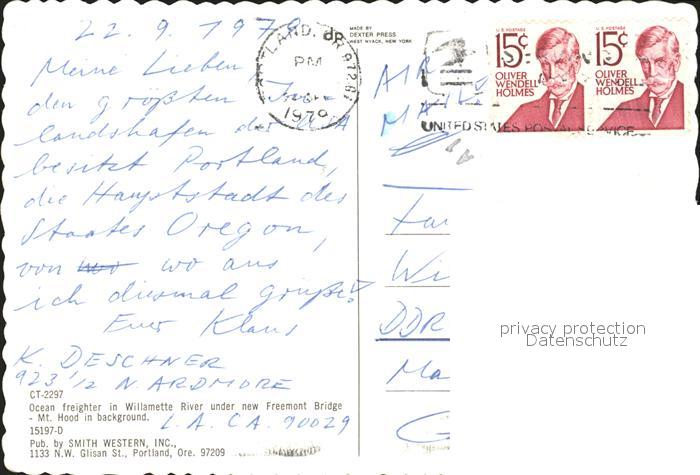 22. 9. 1979
Meine Lieben
den größten
landshafen der
besitzt Portland,
die Hauptstadt des
Staates Oregon,
von wo aus
ich diesmal grüße!
Euer Klaus
K. DESCHNER
923 1/2 N. ARDMORE
L.A. CA. 90029
CT-2297
Ocean freighter in Willamette River under new Freemont Bridge
- Mt. Hood in background.
15197-D
Pub. by SMITH WESTERN, INC.,
1133 N.W. Glisan St., Portland, Ore. 97209
MADE BY
DEXTER PRESS
WEST NYACK, NEW YORK
LAND, OR 972
PM
1979
AIR
MAIL
U.S. POSTAGE
15¢
OLIVER
WENDELL
HOLMES
U.S. POSTAGE
15¢
OLIVER
WENDELL
HOLMES
UNITED STATES POSTAL SERVICE
Fa
Wi
DDR
Ma
G
privacy protection
Datenschutz